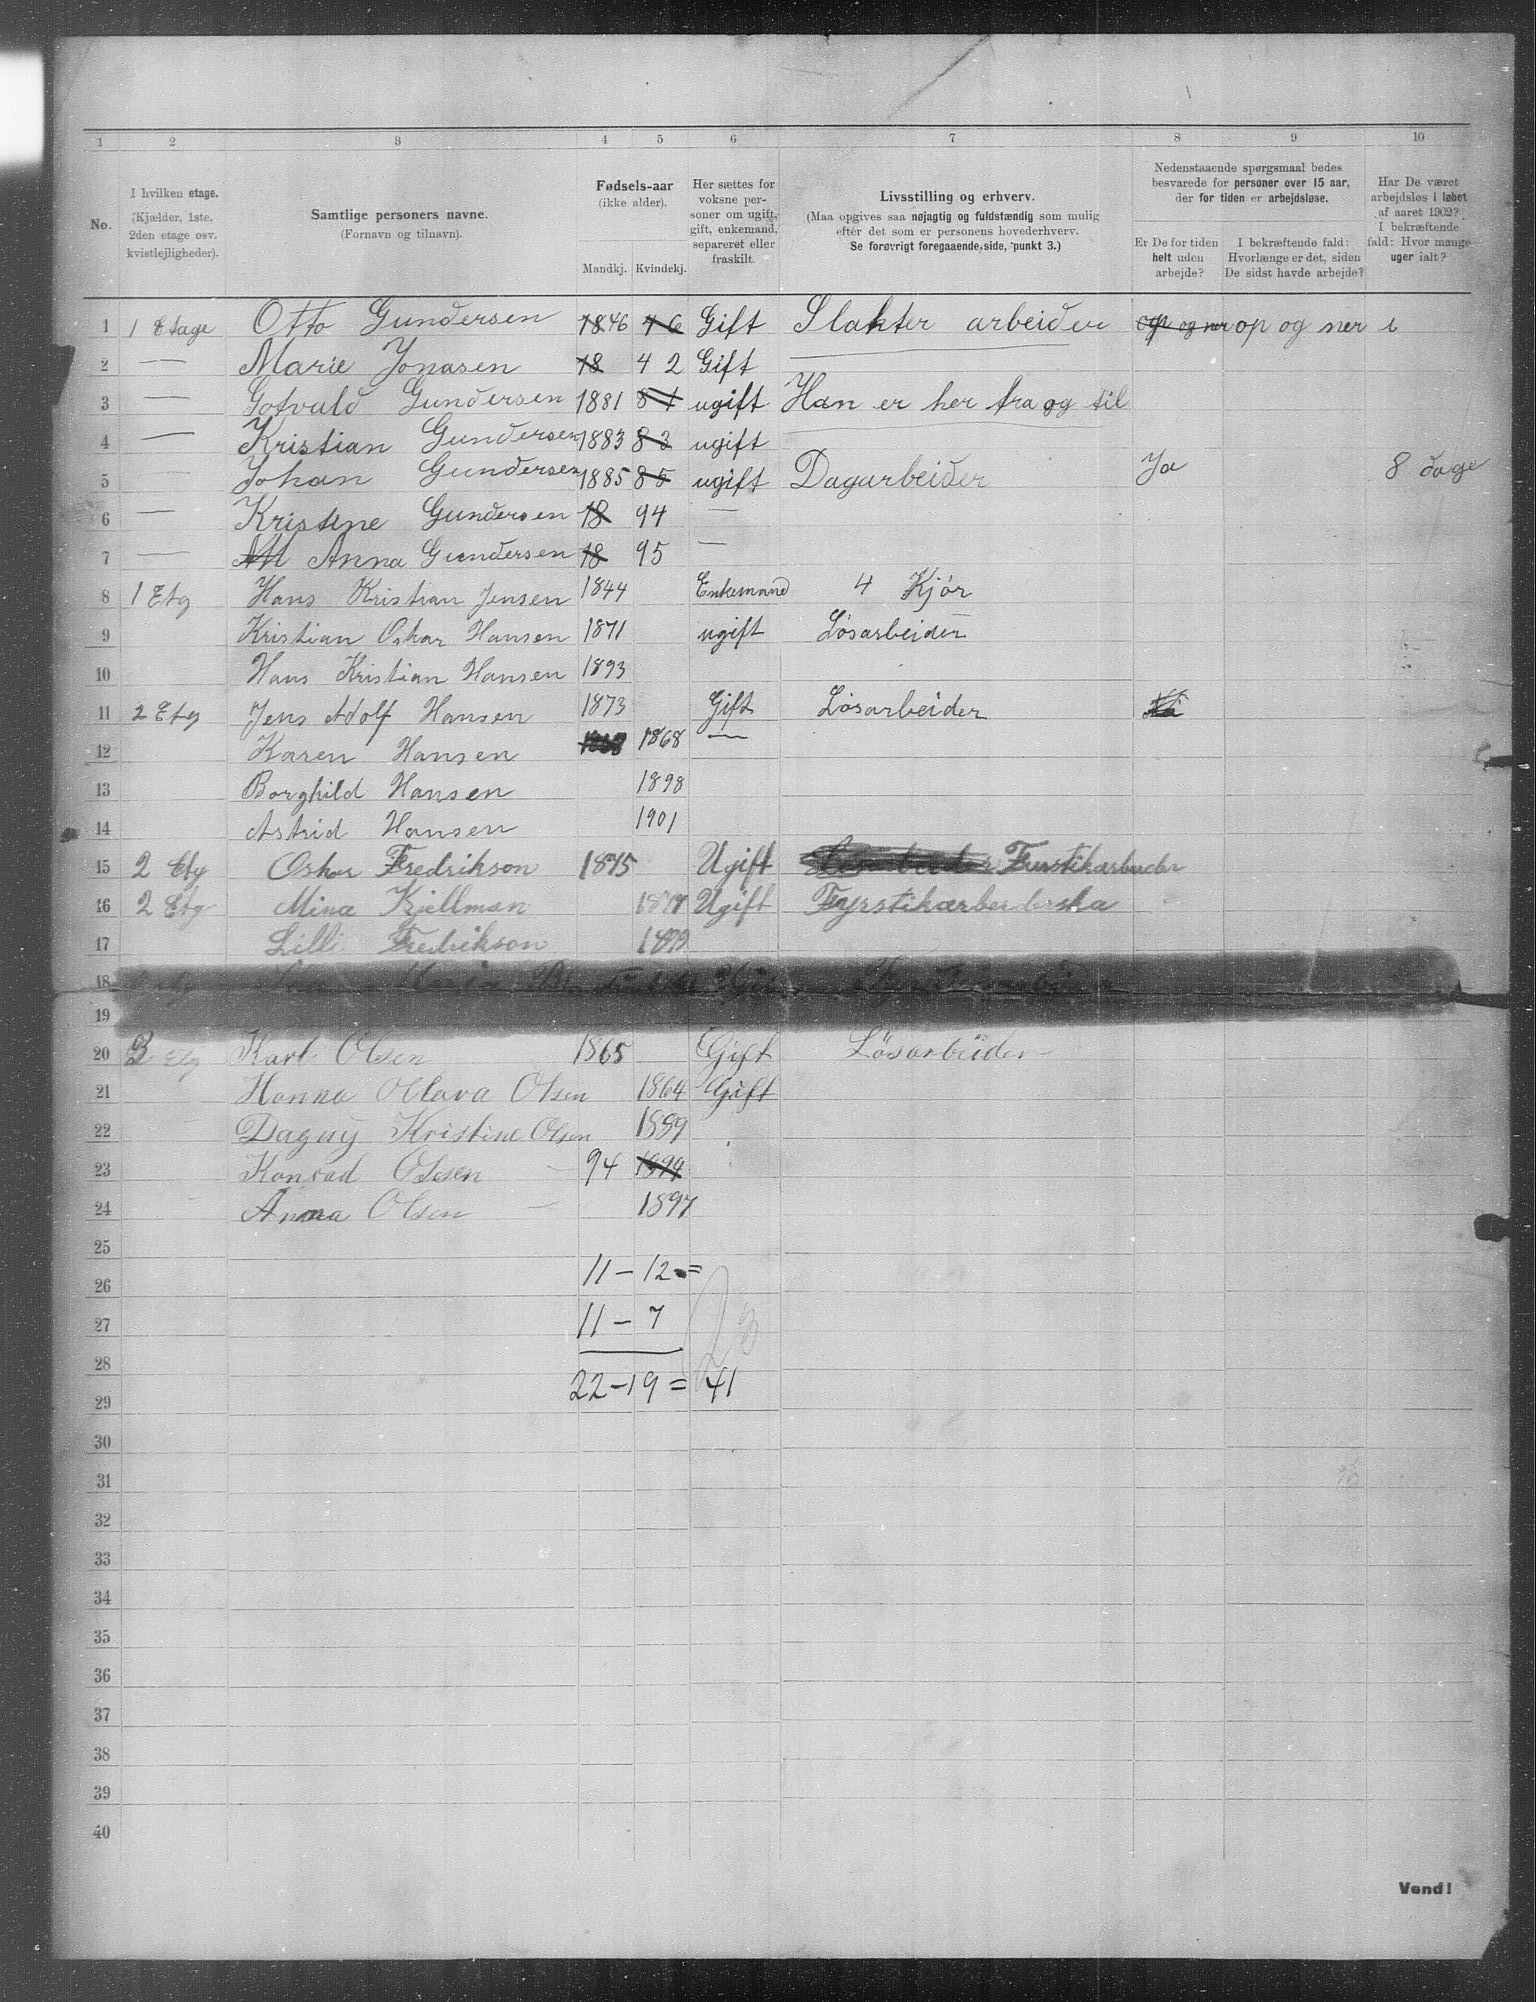 1 2 3 4 5 6 7 8 9 10
No.
I hvilken etage.
(Kjælder, 1ste,
2den etage osv.
kvistlejligheder).
Samtlige personers navne.
(Fornavn og tilnavn).
Fødsels-aar
(ikke alder).
Mandkj. Kvindekj.
Her sættes for
voksne per-
soner om ugift,
gift, enkemand,
separeret eller
fraskilt.
Livsstilling og erhverv.
(Maa opgives saa nøjagtig og fuldstændig som mulig
efter det som er personens hovederhverv.
Se forøvrigt foregaaende side, punkt 3.)
Nedenstaaende spørgsmaal bedes
besvarede for personer over 15 aar,
der for tiden er arbejdsløse.
Er De for tiden
helt uden
arbejde?
I bekræftende fald:
Hvorlænge er det, siden
De sidst havde arbejde?
Har De været
arbejdsløs i løbet
af aaret 1902?
I bekræftende
fald: Hvor mange
uger ialt?
1 1 Etage Otto Gundersen 1846 46 Gift Slakter arbeider op og ner op og ner i
2 — Marie Jonasen 18 42 Gift
3 — Gotvald Gundersen 1881 81 ugift Han er her fra og til
4 — Kristian Gundersen 1883 83 ugift
5 — Johan Gundersen 1885 85 ugift Dagarbeider Ja 8 dage
6 — Kristine Gundersen 18 94 —
7 — Anna Gundersen 18 95 —
8 1 Etg Hans Kristian Jensen 1844 Enkemand 4 Kjór
9 Kristian Oskar Hansen 1871 ugift Løsarbeider
10 Hans Kristian Hansen 1893
11 2 Etg Jens Adolf Hansen 1873 Gift Løsarbeider
12 Karen Hansen 1868 1868 —
13 Borghild Hansen 1898
14 Astrid Hansen 1901
15 2 Etg Oskar Fredrikson 1875 Ugift
16 2 Etg Mina Kjellman Ugift Fyrstikarbeiderska
17 Lilli Fredrikson 1899
18 Maria
19
20 3 Etg Karl Olsen 1865 Gift Løsarbeider
21 Hanna Ollava Olsen 1864 Gift
22 Dagny Kristine Olsen 1889
23 Konrad Olsen — 94 1894
24 Anna Olsen — 1897
25
26 11 – 12 =
27 11 – 7
28
29 22 – 19 = 41
30
31
32
33
34
35
36
37
38
39
40
Vend!